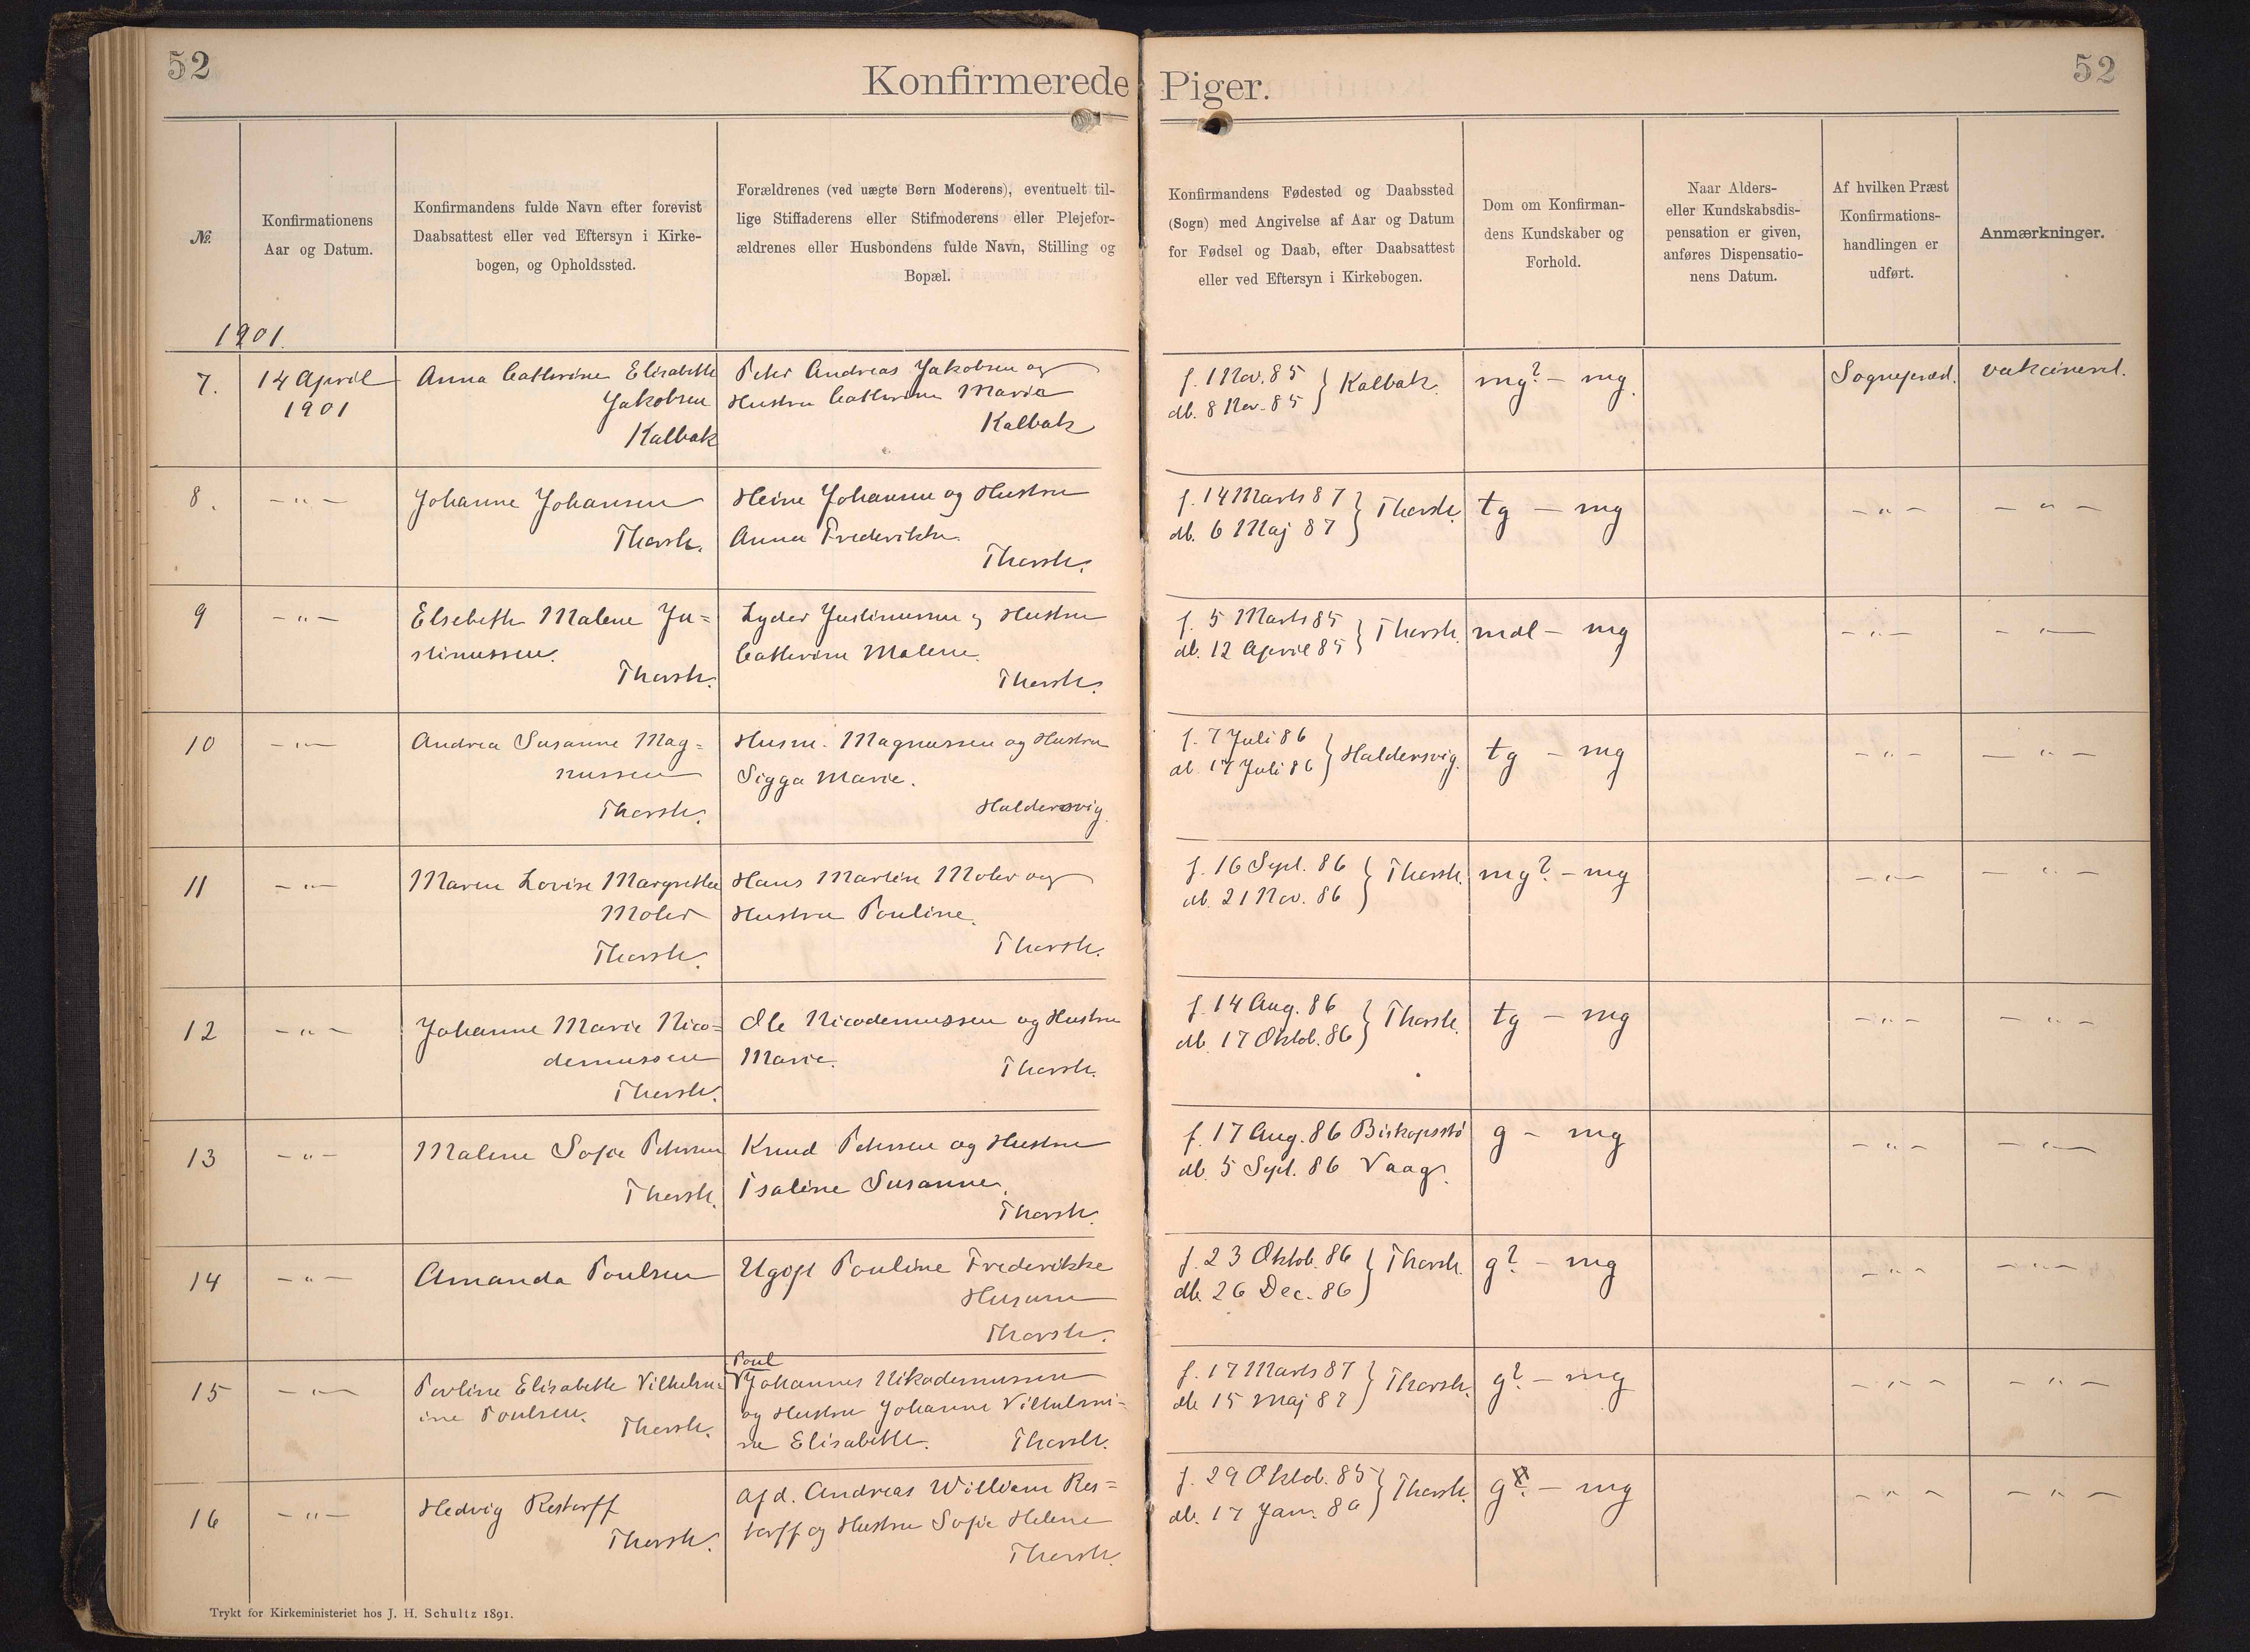 52
Konfirmerede Piger.
52
№.
Konfirmationens
Aar og Datum.
Konfirmandens fulde Navn efter forevist
Daabsattest eller ved Eftersyn i Kirke-
bogen, og Opholdssted.
Forældrenes (ved uægte Børn Moderens), eventuelt til-
lige Stiffaderens eller Stifmoderens eller Plejefor-
ældrenes eller Husbondens fulde Navn, Stilling og
Bopæl.
Konfirmandens Fødested og Daabssted
(Sogn) med Angivelse af Aar og Datum
for Fødsel og Daab, efter Daabsattest
eller ved Eftersyn i Kirkebogen.
Dom om Konfirman-
dens Kundskaber og
Forhold.
Naar Alders-
eller Kundskabsdis-
pensation er given,
anføres Dispensatio-
nens Datum.
Af hvilken Præst
Konfirmations-
handlingen er
udført.
Anmærkninger.
1901.
7.
14 April
1901
Anna Cathrine Elisabeth
Jakobsen
Kalbak
Peter Andreas Jakobsen og
Hustru Cathrine Maria
Kalbak
f. 1 Nov. 85
db. 8 Nov. 85 } Kalbak.
mg? – mg.
Sognepræst.
vakcineret.
8.
– „ –
Johanne Johansen
Thorsh.
Heine Johansen og Hustru
Anna Frederikke.
Thorsh.
f. 14 Marts 87
db. 6 Maj 87 } Thorsh.
tg – mg
– „ –
– „ –
9
– „ –
Elsebeth Malene Ju=
stinussen.
Thorsh.
Lyder Justinussen og Hustru
Cathrine Malene.
Thorsh.
f. 5 Marts 85
db. 12 April 85 } Thorsh.
mdl – mg
– „ –
– „ –
10
– „ –
Andrea Susanne Mag=
nussen
Thorsh.
Husm. Magnussen og Hustru
Sigga Marie.
Haldersvig.
f. 7 Juli 86
db. 17 Juli 86 } Haldersvig.
tg – mg
– „ –
– „ –
11
– „ –
Maren Lovise Margrethe
Mohr
Thorsh.
Hans Martin Mohr og
Hustru Pouline.
Thorsh.
f. 16 Sept. 86
db. 21 Nov. 86 } Thorsh.
mg? – mg
– „ –
– „ –
12
– „ –
Johanne Marie Nico=
demussen
Thorsh.
Ole Nicodemussen og Hustru
Marie.
Thorsh.
f. 14 Aug. 86
db. 17 Oktob. 86 } Thorsh.
tg – mg
– „ –
– „ –
13
– „ –
Malene Sofie Petersen
Thorsh.
Knud Petersen og Hustru
Isaline Susanne.
Thorsh.
f. 17 Aug. 86 Biskopsstö
db. 5 Sept. 86 Vaag.
g – mg
– „ –
– „ –
14
– „ –
Amanda Poulsen
Ugift Pouline Frederikke
Thorsh.
f. 23 Oktob. 86
db. 26 Dec. 86 } Thorsh.
g? – mg
– „ –
– „ –
15
– „ –
Povline Elisabeth Vilhelm=
ine Poulsen.
Thorsh.
Poul
Johannes Nikodemussen
og Hustru Johanne Vilhelmi-
ne Elisabeth. Thorsh.
f. 17 Marts 87
db. 15 Maj 87 } Thorsh.
g? – mg
– „ –
– „ –
16
– „ –
Hedvig Restorff
Thorsh.
Afd. Andreas William Res=
torff og Hustru Sofie Helene
Thorsh.
f. 29 Oktob. 85
db. 17 Jan. 86 } Thorsh.
g? – mg
– „ –
– „ –
Trykt for Kirkeministeriet hos J. H. Schultz 1891.